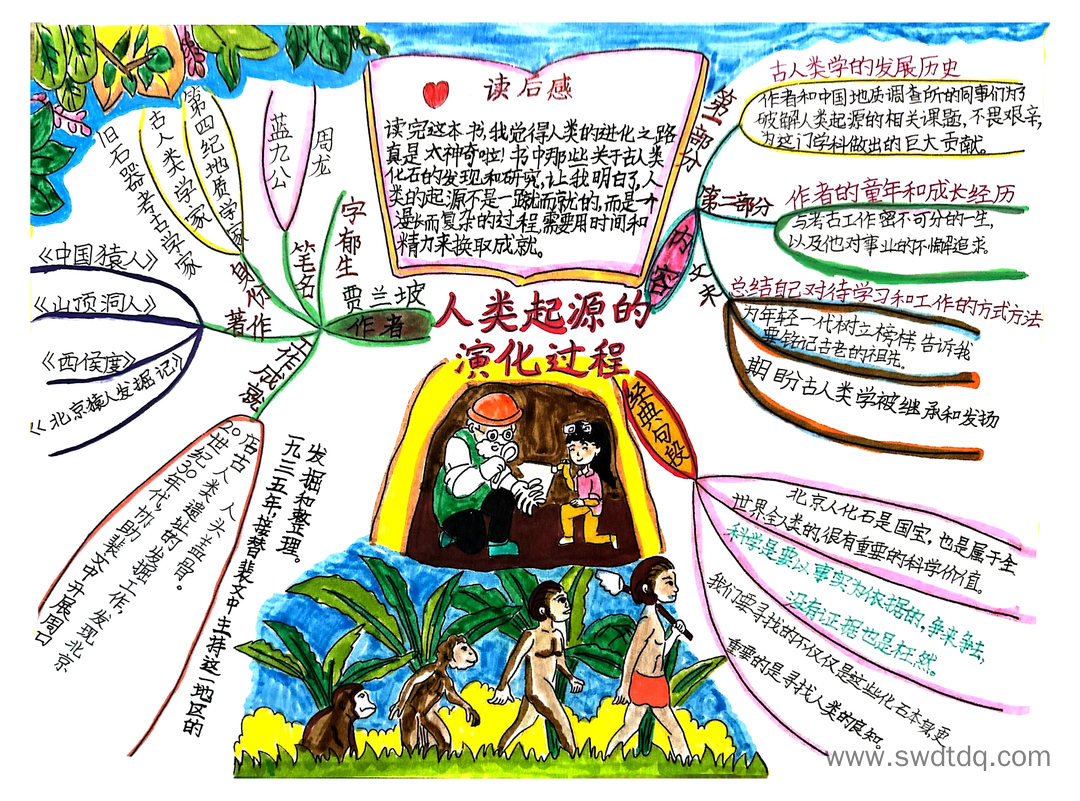 读后感
读完这本书,我觉得人类的进化之路
真是太神奇啦!书中那些关于古人类
化石的发现和研究,让我明白了,人
类的起源不是一蹴而就的,而是一个
漫长而复杂的过程,需要用时间和
精力来换取成就。
人类起源的
演化过程
作者
贾兰坡
字郁生
笔名
周龙
蓝九公
身份
第四纪地质学家
古人类学家
旧石器考古学家
著作
《中国猿人》
《山顶洞人》
《西侯度》
《北京猿人发掘记》
20世纪30年代,协助裴文中开展周口
店古人类遗址的发掘工作,发现北京
人头盖骨。
一九三五年,接替裴文中主持这一地区的
发掘和整理。
内容
第一部分
古人类学的发展历史
作者和中国地质调查所的同事们为了
破解人类起源的相关课题,不畏艰辛,
为这门学科做出的巨大贡献。
第二部分
作者的童年和成长经历
与考古工作密不可分的一生,
以及他对事业的不懈追求。
总结自己对待学习和工作的方式方法
为年轻一代树立榜样,告诉我
要铭记古老的祖先。
期盼古人类学被继承和发扬
经典句段
北京人化石是国宝,也是属于全
世界全人类的,很有重要的科学价值。
科学是要以事实为依据的,争来争去,
没有证据也是枉然。
我们要寻找的不仅仅是这些化石本身,更
重要的是寻找人类的良知。
www.swdtdq.com